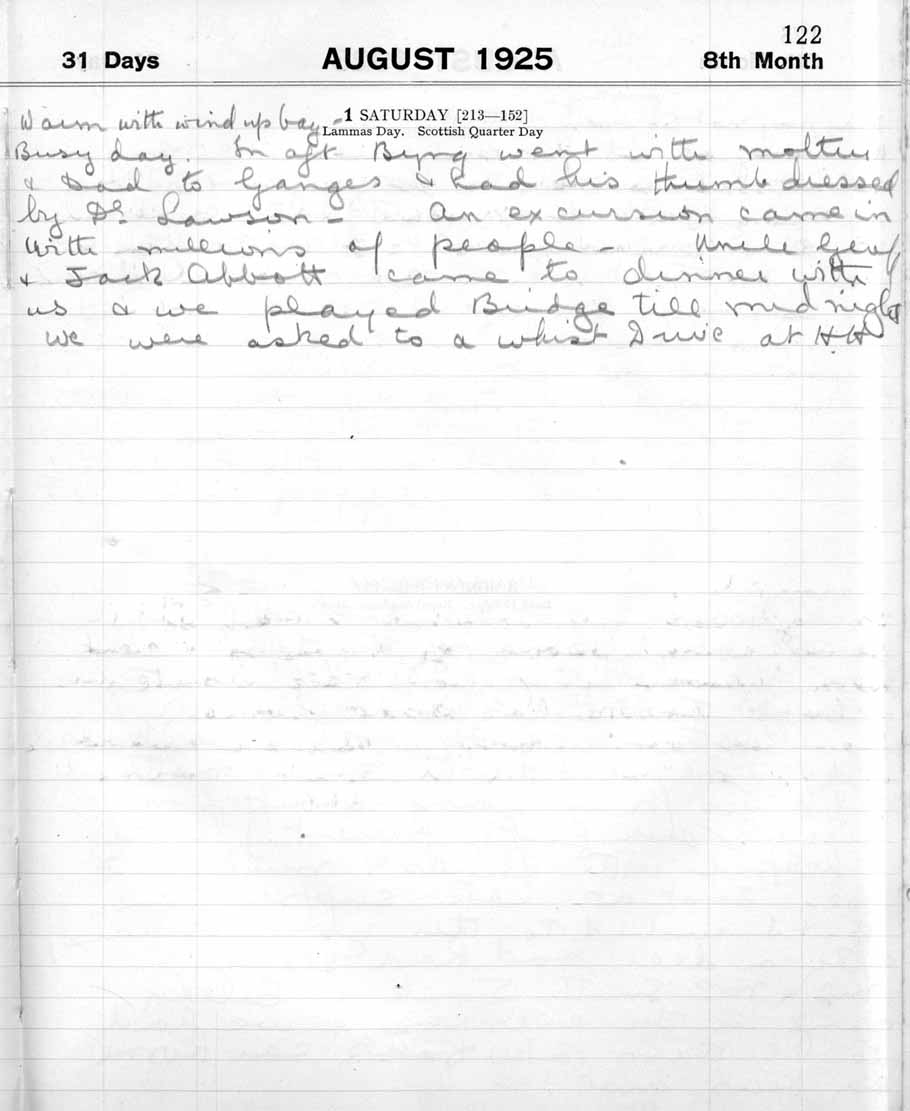 122
31 Days AUGUST 1925 8th Month
1 SATURDAY [213—152]
Lammas Day. Scottish Quarter Day
Warm with wind up bay -
Busy day. In aft Byng went with
& Dad to Ganges & had his thumb dressed
by Dr Lawson - An excursion came in
with millions of people - Uncle
& Jack Abbott came to dinner with
us & we played Bridge till midnight
We were asked to a whist Drive at HH